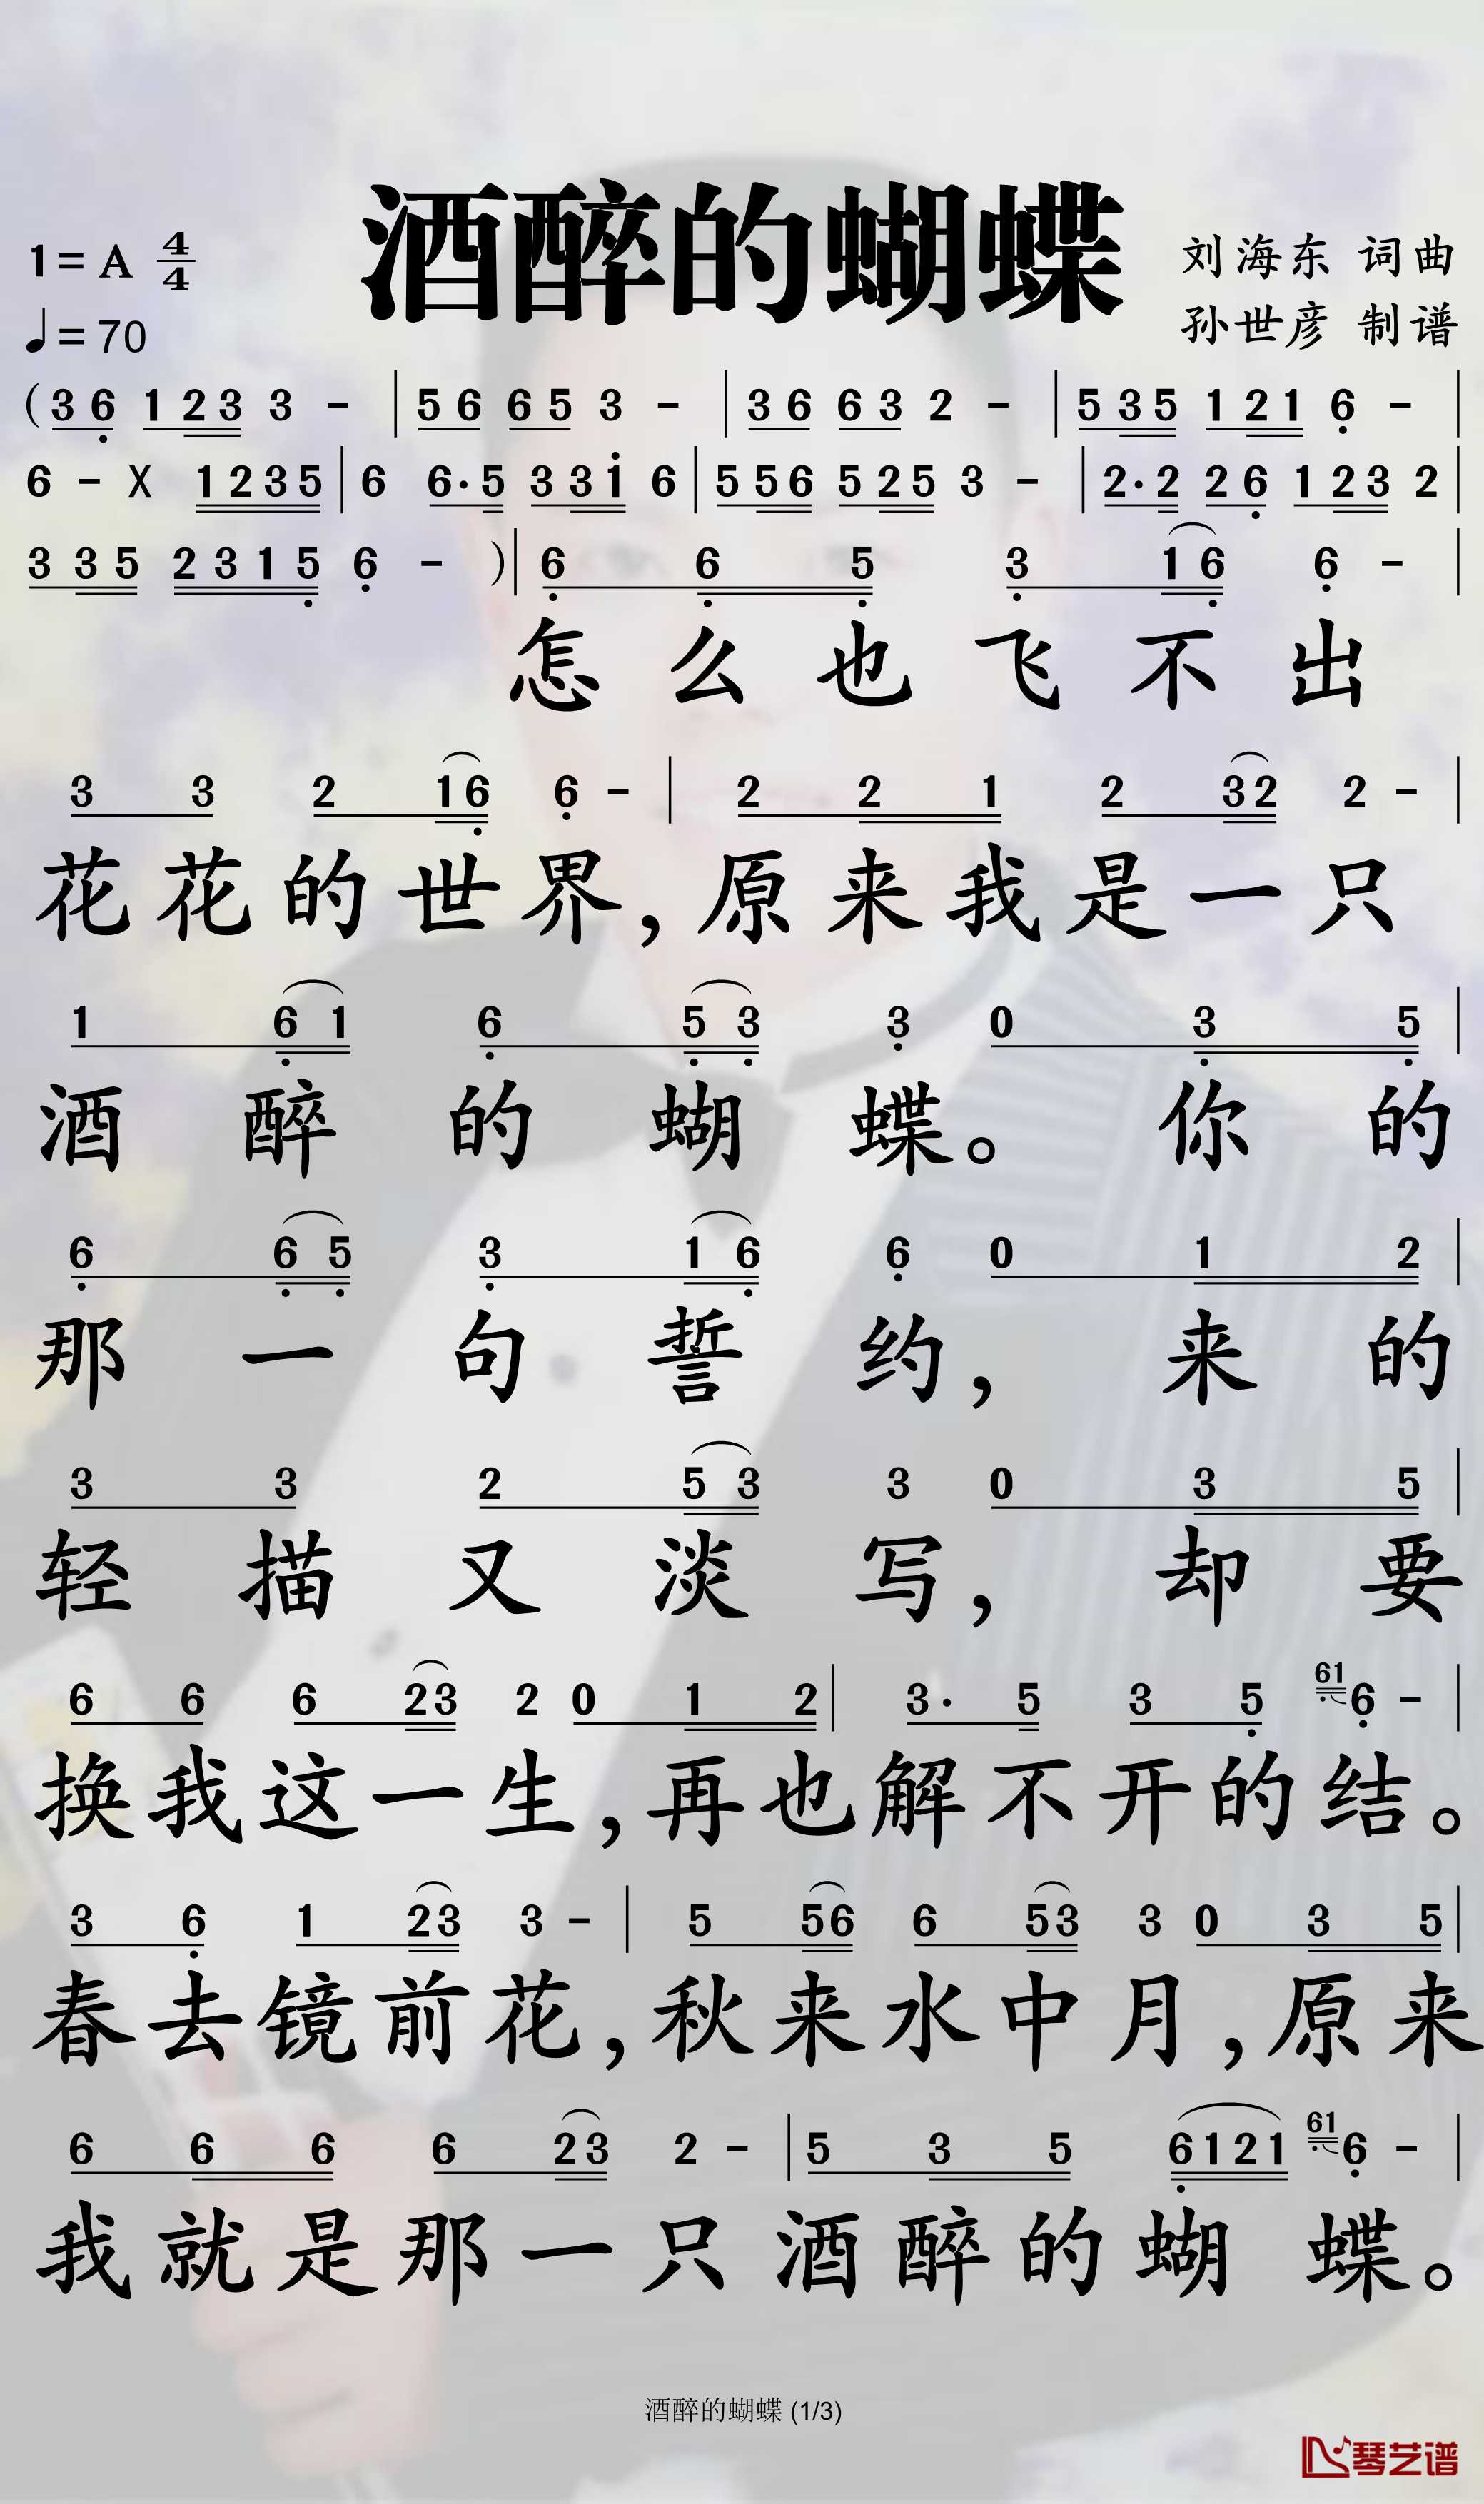 酒醉的蝴蝶
1=A 4/4
♩=70
刘海东 词曲
孙世彦 制谱
(3 6 1 2 3 3 - | 5 6 6 5 3 - | 3 6 6 3 2 - | 5 3 5 1 2 1 6 - |
6 - X 1 2 3 5 | 6 6· 5 3 3 1 6 | 5 5 6 5 2 5 3 - | 2· 2 2 6 1 2 3 2 |
3 3 5 2 3 1 5 6 - ) | 6 6 5 3 1 6 6 - |
怎么也飞不出
3 3 2 1 6 6 - | 2 2 1 2 3 2 2 - |
花花的世界,原来我是一只
1 6 1 6 5 3 3 0 3 5 |
酒醉的蝴蝶。你的
6 6 5 3 1 6 6 0 1 2 |
那一句誓约,来的
3 3 2 5 3 3 0 3 5 |
轻描又淡写,却要
6 6 6 2 3 2 0 1 2 | 3· 5 3 5 61 6 - |
换我这一生,再也解不开的结。
3 6 1 2 3 3 - | 5 5 6 6 5 3 3 0 3 5 |
春去镜前花,秋来水中月,原来
6 6 6 6 2 3 2 - | 5 3 5 6 1 2 1 61 6 - |
我就是那一只酒醉的蝴蝶。
酒醉的蝴蝶 (1/3)
琴艺谱